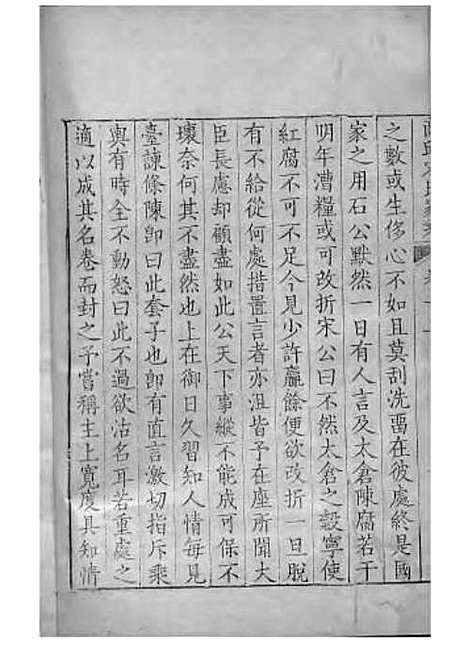 之數或生侈心不如且莫刮洗畱在彼處終是國
家之用石公默然一日有人言及太倉陳腐若干
明年漕糧或可改折宋公曰不然太倉之穀寧使
紅腐不可不足今見少許羸餘便欲改折一旦脫
有不給從何處措置言者亦沮皆予在座所聞大
臣長慮却顧盡如此公天下事縱不能成可保不
壞奈何其不盡然也上在御日久習知人情每見
臺諫條陳卽曰此套子也卽有直言激切指斥乘
輿有時全不動怒曰此不過欲沽名耳若重處之
適以成其名卷而封之予嘗稱主上寬度具知情